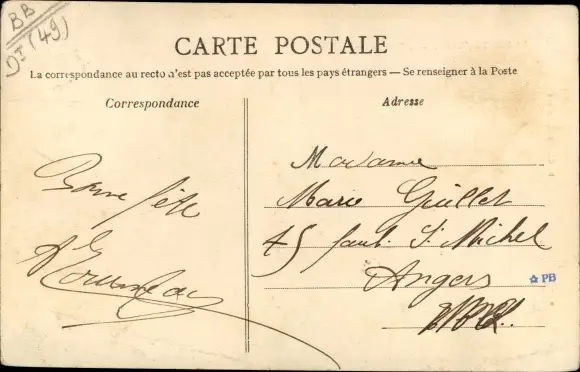 BB
DT (49)
CARTE POSTALE
La correspondance au recto n'est pas acceptée par tous les pays étrangers — Se renseigner à la Poste
Correspondance
Adresse
Bonne fête
Madame
Marie Guillet
45 faub. St Michel
Angers
PB